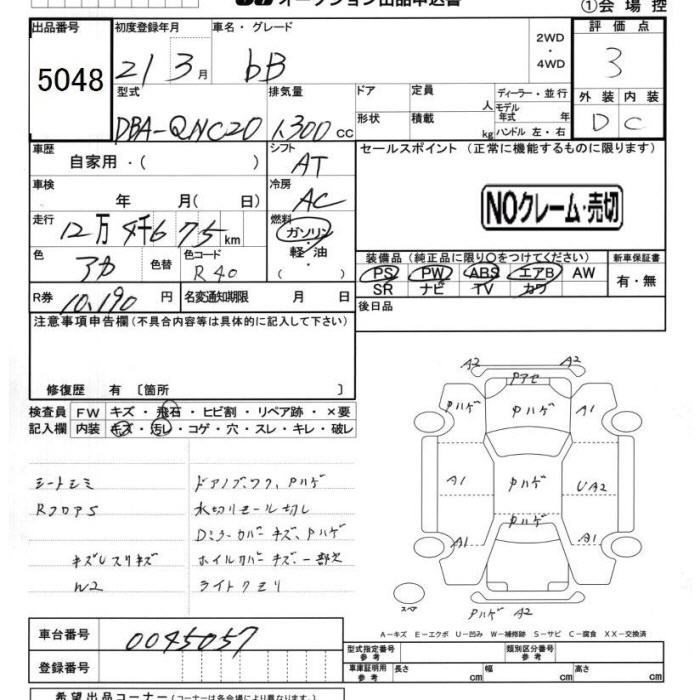 オークション出品申込書
①会場控
出品番号 初度登録年月 車名・グレード 2WD・4WD 評価点
5048 21 3月 bB 3
型式 排気量 ドア 定員 人 ディーラー・並行 外装 内装
DBA-QNC20 1,300 cc 形状 積載 kg モデル年式 年 ハンドル 左・右 D C
車歴 自家用・( ) シフト AT セールスポイント (正常に機能するものに限ります)
車検 年 月( 日) 冷房 AC
NOクレーム・売切
走行 12万4千675km 燃料 ガソリン・軽油
装備品 (純正品に限り○をつけてください) 新車保証書
色 アカ 色替 色コード R40
PS PW ABS エアB AW 有・無
SR ナビ TV カワ
R券 10,190円 名変通知期限 月 日 後日品
注意事項申告欄 (不具合内容等は具体的に記入して下さい)
修復歴 有 〔箇所 〕
検査員 FW キズ・飛石・ヒビ割・リペア跡・×要
記入欄 内装 キズ・汚レ・コゲ・穴・スレ・キレ・破レ
シートシミ
RフロアS
キズUスリキズ
W2
ドアノブ、フク、Pハゲ
水切りモール切し
Dミラーカバーキズ、Pハゲ
ホイルカバーキズ、一部欠
ライトクモリ
A2 A2
Pアセ
Pハゲ Pハゲ A1
A1 Pハゲ UA2
Pハゲ
A1 A1
スペア
Pハゲ A2
A－キズ E－エクボ U－凹み W－補修跡 S－サビ C－腐食 XX－交換済
車台番号 0045057
登録番号
型式指定番号 参考 類別区分番号 参考
車庫証明用 参考 長さ cm 幅 cm 高さ cm
希望出品コーナー (コーナーは各会場により異なります)